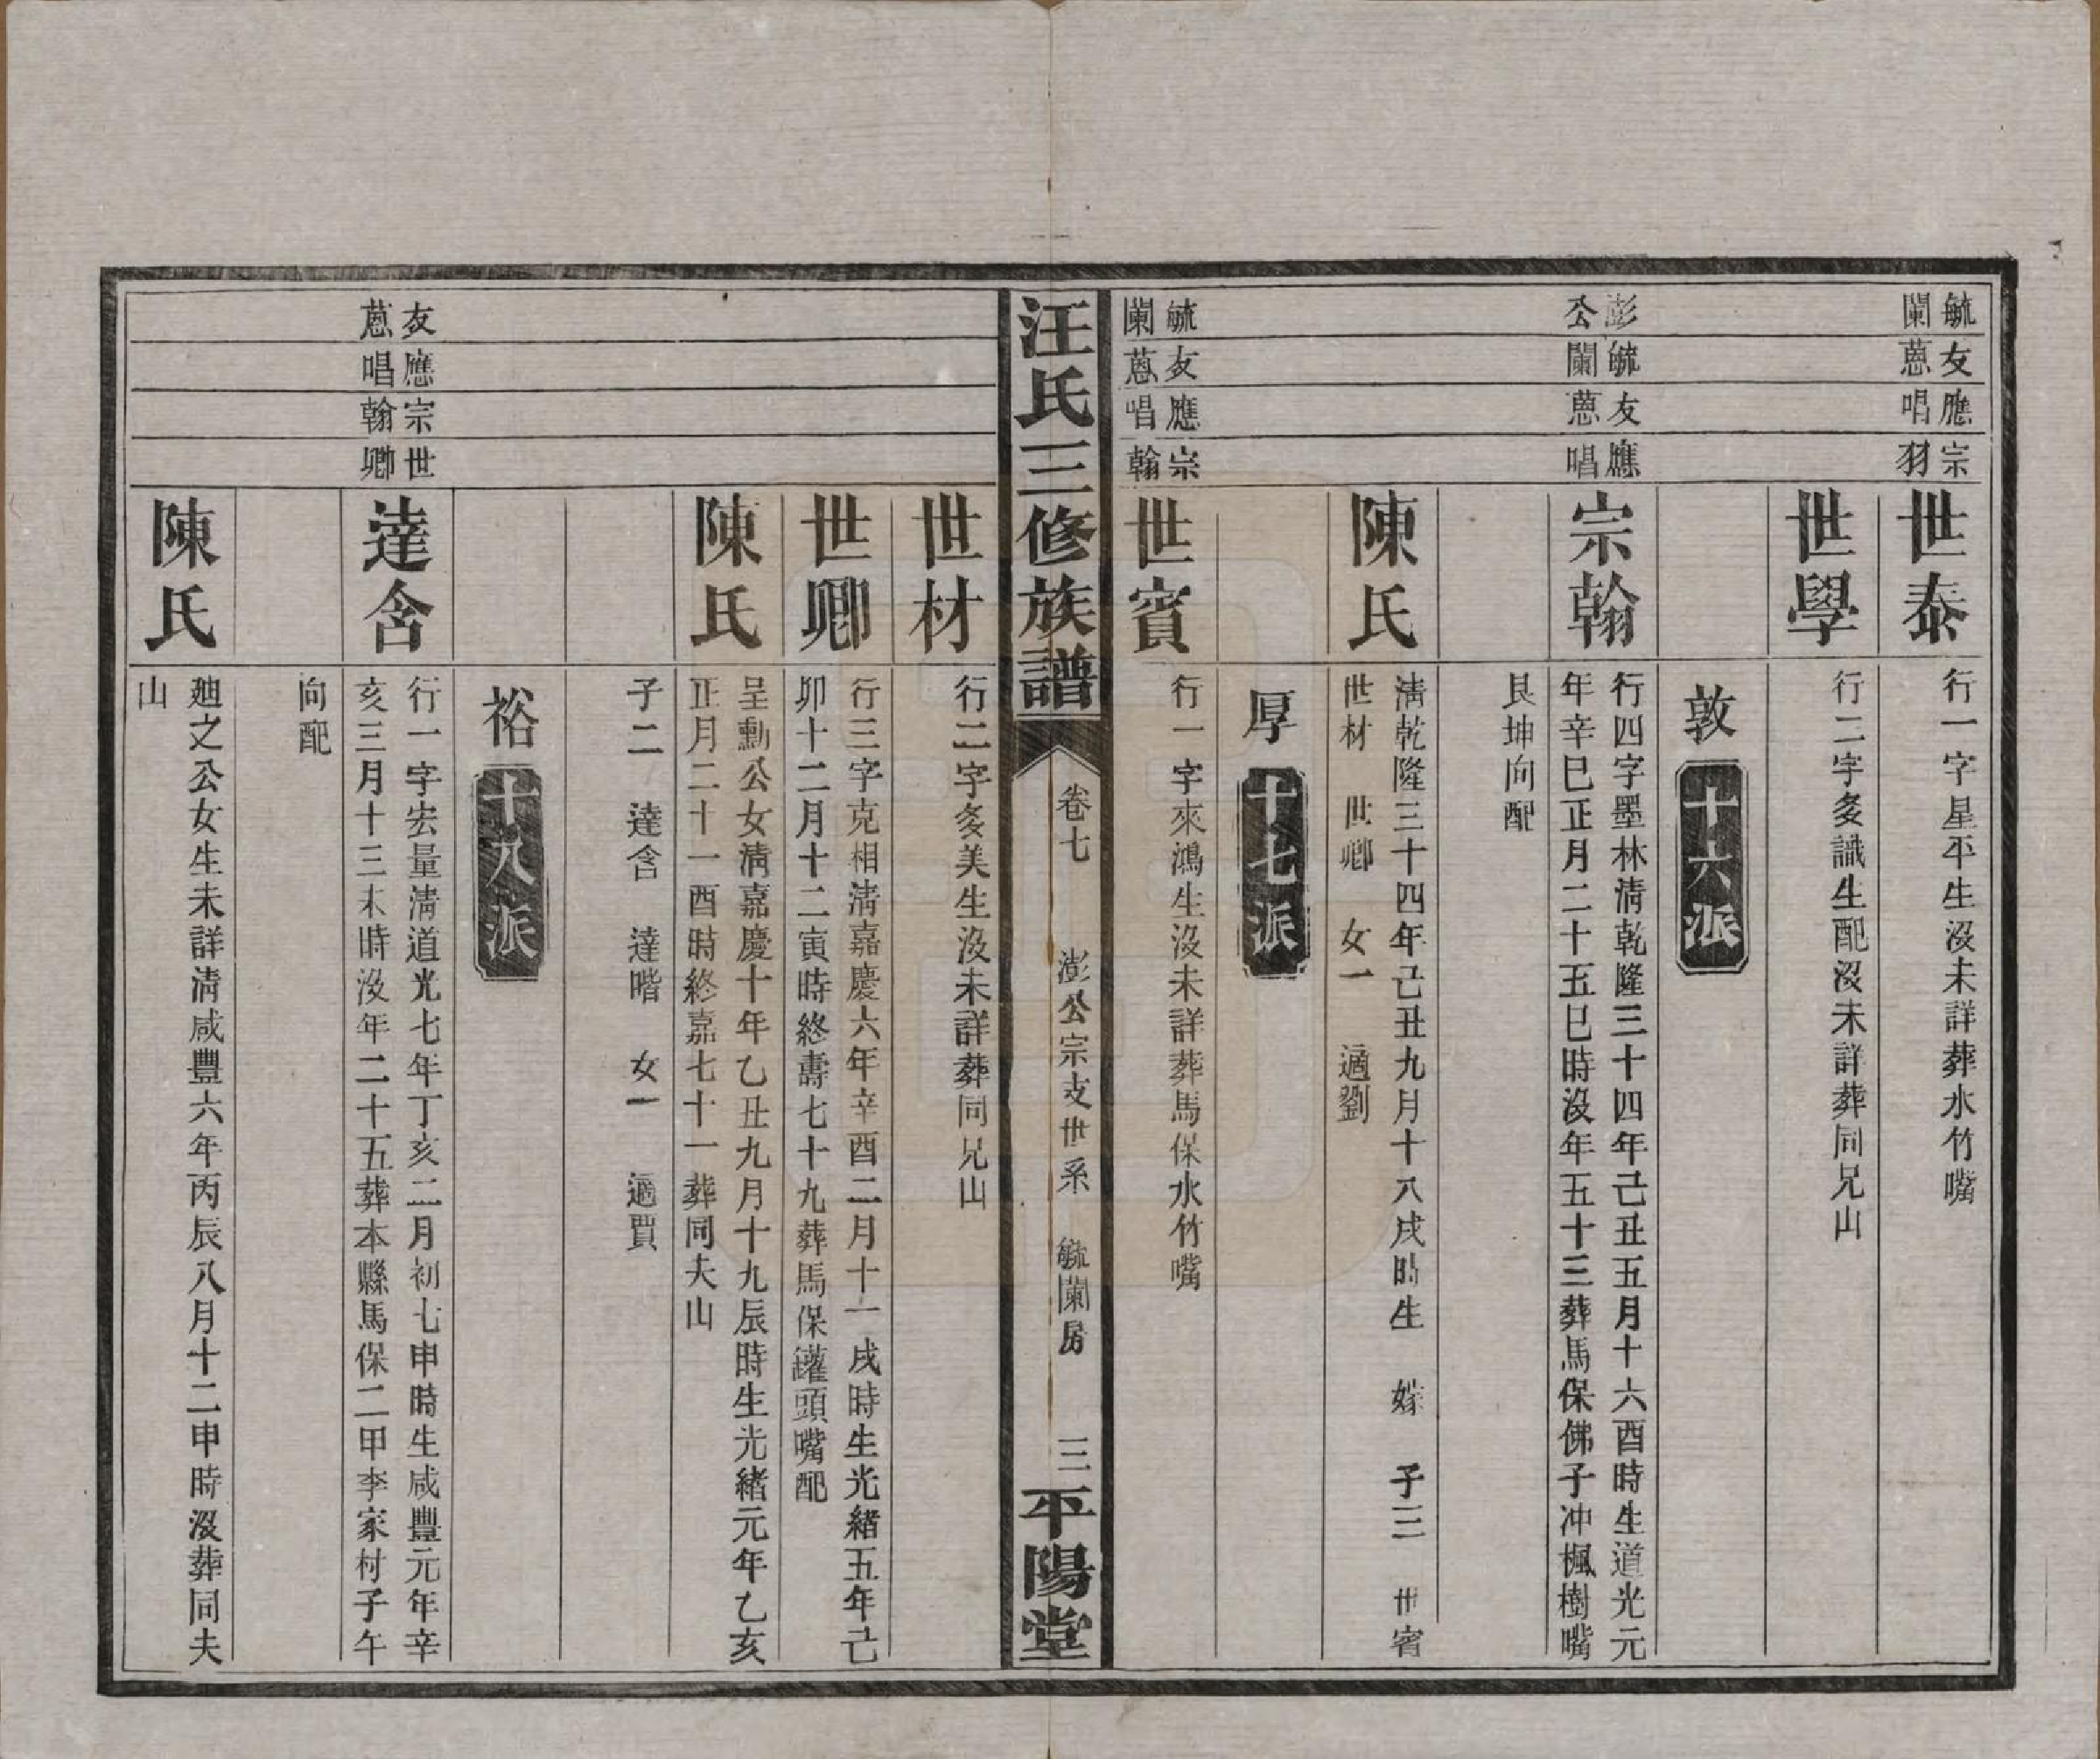 毓蘭
友蒽
應唱
宗羽
世泰
行一字星平生沒未詳葬水竹嘴
世學
行二字多識生配沒未詳葬同兄山
敦 十六派
彭公
毓蘭
友蒽
應唱
宗翰
行四字墨林清乾隆三十四年己丑五月十六酉時生道光元
年辛巳正月二十五巳時沒年五十三葬馬保佛子冲楓樹嘴
艮坤向配
陳氏
清乾隆三十四年己丑九月十八戌時生 嫁 子三 世賓
世材 世卿 女一 適劉
厚 十七派
毓蘭
友蒽
應唱
宗翰
世賓
行一字來鴻生沒未詳葬馬保水竹嘴
汪氏三修族譜
卷七 澎公宗支世系 毓蘭房 三
平陽堂
世材
行二字多美生沒未詳葬同兄山
世卿
行三字克相清嘉慶六年辛酉二月十一戌時生光緒五年己
卯十二月十二寅時終壽七十九葬馬保鑵頭嘴配
陳氏
呈勳公女清嘉慶十年乙丑九月十九辰時生光緒元年乙亥
正月二十一酉時終嘉七十一葬同夫山
子二 達含 達喈 女一 適賈
裕 十八派
友蒽
應唱
宗翰
世卿
達含
行一字宏量清道光七年丁亥二月初七申時生咸豐元年辛
亥三月十三未時沒年二十五葬本縣馬保二甲李家村子午
向配
陳氏
廸之公女生未詳清咸豐六年丙辰八月十二申時沒葬同夫
山